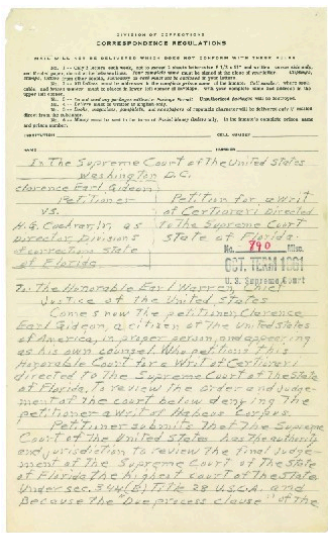 DIVISION OF CORRECTIONS
CORRESPONDENCE REGULATIONS
MAIL WILL NOT BE DELIVERED WHICH DOES NOT CONFORM WITH THESE RULES
INSTITUTION CELL NUMBER
NAME NUMBER
In The Supreme Court of The United States
Washington D.C.
Clarence Earl Gideon
Petitioner
vs.
H.G. Cochran, Jr., as
Director, Divisions
of corrections State
of Florida
Petition for a Writ
of Certiorari Directed
to The Supreme Court
State of Florida.
No. 790 Misc.
OCT. TERM 1961
U. S. Supreme Court
To: The Honorable Earl Warren, Chief
Justice of the United States
Comes now The petitioner, Clarence
Earl Gideon, a citizen of The United States
of America, in proper person, and appearing
as his own counsel. Who petitions this
Honorable Court for a Writ of Certiorari
directed to The Supreme Court of The State
of Florida, To review the order and Judge-
ment of the court below denying The
petitioner a writ of Habeus Corpus.
Petitioner submits That The Supreme
Court of The United States has the authority
and jurisdiction to review the final Judge-
ment of The Supreme Court of The State
of Florida the highest court of The State
Under sec. 344(B) Title 28 U.S.C.A. and
Because The "Due process clause" of the